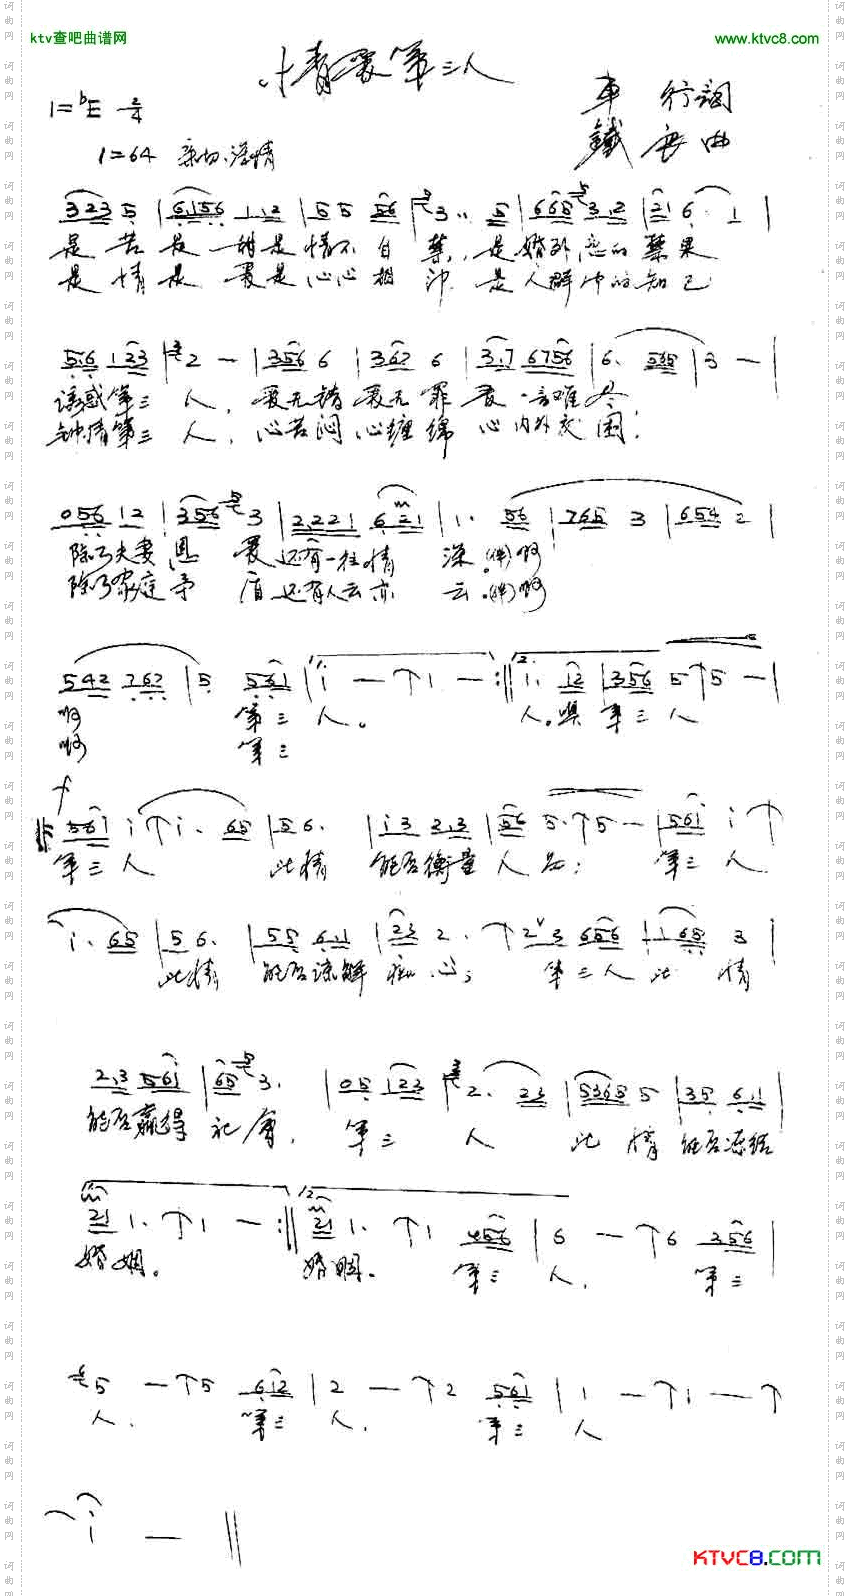 ktv查吧曲谱网
www.ktvc8.com
情爱第三人
1=bE 2/4
車 行詞
鐵 曲
1=64 亲切、深情
3 2 3 5 | 6.1 5 6 1.2 | 5 5 5 6 | 3.. 5 | 6 6 5 3.2 | 2 1 6. 1 |
是苦是甜是情不自禁，是婚外恋的禁果
是情是爱是心心相印 是人群中的知己
5.6 1 2 3 | 2 — | 3 5 6 6 | 3 6 2 6 | 3.7 6 7 5 6 | 6. 5 6 5 | 3 — |
诱惑第三人，爱无错爱无罪爱言难尽
钟情第三人，心苦闷心缠绵心内外交困；
0 5 6 1 2 | 3 5 6 3 | 2.2 2 1 6 2 1 | 1. 5 6 | 7 6 5 3 | 6 5 4 2 |
除了夫妻恩爱还有一往情深。(伴)啊
除了家庭矛盾还有人云亦云。(伴)啊
5 4 2 7 6 2 | 5 5 6 1 | 1 — ↑ 1 — :|| 1. 1 2 | 3 5 6 5 ↑ 5 — |
啊 第三人。 人。噢 第三人
啊 第三
f
5 6 i i ↑ i. 6 5 | 5 6. | i 3 2.3 | 5 6 5. ↑ 5 — | 5 6 i i ↑
第三人 此情 能否衡量人品； 第三人
i. 6 5 | 5 6. | 5 5 6.1 | 2 3 2. ↑ 2 3 6 5 6 | 1 6 5 3 |
此情 能否谅解痴心； 第三人此情
2.3 5 6 i | 6 5 3. | 0 5 1 2 3 | 2. 2 3 | 5 3 6 5 5 | 3 5 6.1 |
能否赢得社会， 第三人 此情能否冻结
2 1 1. ↑ 1 — :|| 2 1 1. ↑ 1 4 5 6 | 6 — ↑ 6 3 5 6 |
婚姻。 婚姻。 第三人， 第三
5 — ↑ 5 6 1 2 | 2 — ↑ 2 5 6 1 | 1 — ↑ 1 — ↑
人， 第三人， 第三人
i — ||
KTVC8.COM